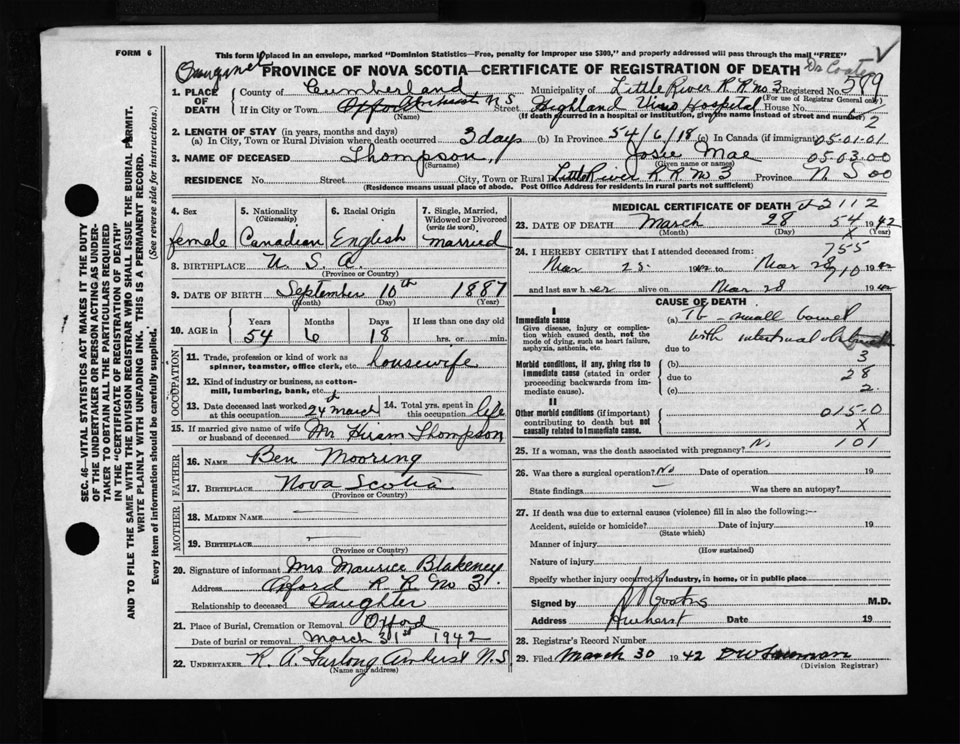 FORM 6
This form if placed in an envelope, marked "Dominion Statistics—Free, penalty for improper use $300," and properly addressed will pass through the mail "FREE"
PROVINCE OF NOVA SCOTIA—CERTIFICATE OF REGISTRATION OF DEATH Dr Coates
1. PLACE OF DEATH
County of Cumberland Municipality of Little River R.R. No 3 Registered No. 589
(For use of Registrar General only)
If in City or Town Amherst N S Street Highland View Hospital House No.
(Name) (If death occurred in a hospital or institution, give the name instead of street and number)
2
2. LENGTH OF STAY (in years, months and days)
(a) In City, Town or Rural Division where death occurred 3 days (b) In Province 54/6/18 (c) In Canada (if immigrant) 05-01-01
3. NAME OF DECEASED Thompson, Josie Mae 05-03-00
(Surname) (Given name or names)
RESIDENCE No. Street City, Town or Rural Div. Little River R.R. No 3 Province N S 00
(Residence means usual place of abode. Post Office Address for residents in rural parts not sufficient)
4. Sex female
5. Nationality (Citizenship) Canadian
6. Racial Origin English
7. Single, Married, Widowed or Divorced (write the word) Married
8. BIRTHPLACE U.S.A.
(Province or Country)
9. DATE OF BIRTH September 10th 1887
(Month) (Day) (Year)
10. AGE in Years Months Days If less than one day old
54 6 18 hrs. or min.
OCCUPATION
11. Trade, profession or kind of work as spinner, teamster, office clerk, etc. housewife
12. Kind of industry or business, as cotton-mill, lumbering, bank, etc.
13. Date deceased last worked at this occupation 24th March
14. Total yrs. spent in this occupation life
15. If married give name of wife or husband of deceased Mr Hiram Thompson
FATHER
16. NAME Ben Mooring
17. BIRTHPLACE Nova Scotia
(Province or Country)
MOTHER
18. MAIDEN NAME
19. BIRTHPLACE
(Province or Country)
20. Signature of informant Mrs Maurice Blakeney
Address Oxford R. R. No 3
Relationship to deceased Daughter
21. Place of Burial, Cremation or Removal Oxford
Date of burial or removal March 31st 1942
22. UNDERTAKER R. A. Furlong Amherst N.S.
(Name and address)
MEDICAL CERTIFICATE OF DEATH 2112
23. DATE OF DEATH March 28 54 1942
(Month) (Day) X (Year)
24. I HEREBY CERTIFY that I attended deceased from: 755
Mar 25 1942 to Mar 28 1942
710
and last saw her alive on Mar 28 1942
CAUSE OF DEATH
I
Immediate cause
Give disease, injury or complication which caused death, not the mode of dying, such as heart failure, asphyxia, asthenia, etc.
(a) Tb - small bowel
with intestinal
due to
Morbid conditions, if any, giving rise to immediate cause (stated in order proceeding backwards from immediate cause).
(b) 3
due to 28
(c) 2
II
Other morbid conditions (if important) contributing to death but not causally related to immediate cause.
015-0
X
25. If a woman, was the death associated with pregnancy? No 101
26. Was there a surgical operation? No Date of operation 19
State findings Was there an autopsy?
27. If death was due to external causes (violence) fill in also the following:—
Accident, suicide or homicide? Date of injury 19
(State which)
Manner of injury
(How sustained)
Nature of injury
Specify whether injury occurred in industry, in home, or in public place
Signed by Coates M.D.
Address Amherst Date 19
28. Registrar's Record Number
29. Filed March 30 1942
(Division Registrar)
SEC. 46—VITAL STATISTICS ACT MAKES IT THE DUTY
OF THE UNDERTAKER OR PERSON ACTING AS UNDERTAKER TO OBTAIN ALL THE PARTICULARS REQUIRED
IN THE "CERTIFICATE OF REGISTRATION OF DEATH"
AND TO FILE THE SAME WITH THE DIVISION REGISTRAR WHO SHALL ISSUE THE BURIAL PERMIT.
WRITE PLAINLY WITH UNFADING INK. THIS IS A PERMANENT RECORD.
Every item of information should be carefully supplied. (See reverse side for instructions.)